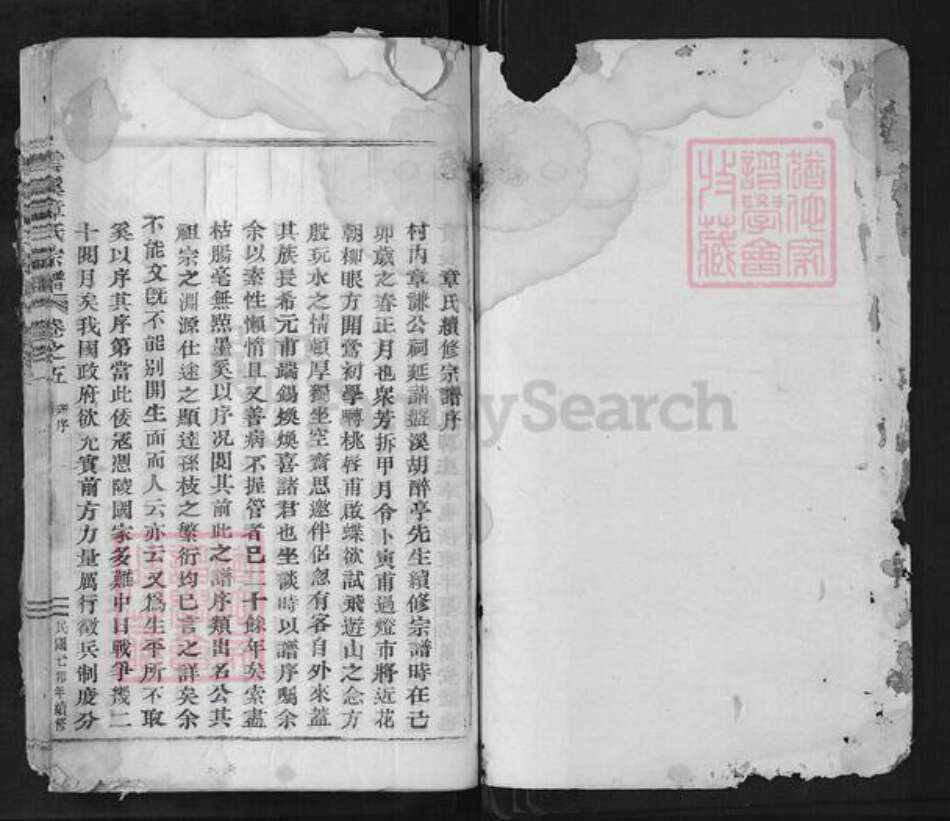 章氏續修宗譜序
村內章謙公祠延請盤溪胡醉亭先生續修宗譜時在己
卯歲之春正月也衆芳拆甲月令卜寅甫過燈市將近花
朝柳眼方開鶯初學轉桃唇甫啟蝶欲試飛遊山之念方
殷玩水之情頗厚獨坐空齋思邀伴侶忽有客自外來蓋
其族長希元甫端錫煥煥喜諸君也坐談時以譜序囑余
余以素性懶惰且又善病不握管者已二十餘年矣索盡
枯腸毫無點墨奚以序况閱其前此之譜序類出名公其
祖宗之淵源仕途之顯達孫枝之繁衍均已言之詳矣余
不能文旣不能別開生面而人云亦云又爲生平所不取
奚以序其序第當此倭寇憑陵國家多難中日戰爭幾二
十閱月矣我國政府欲充實前方力量厲行徵兵制度分
章氏宗譜
卷之五
序
民國己卯年續修
譜學會
收藏
FamilySearch